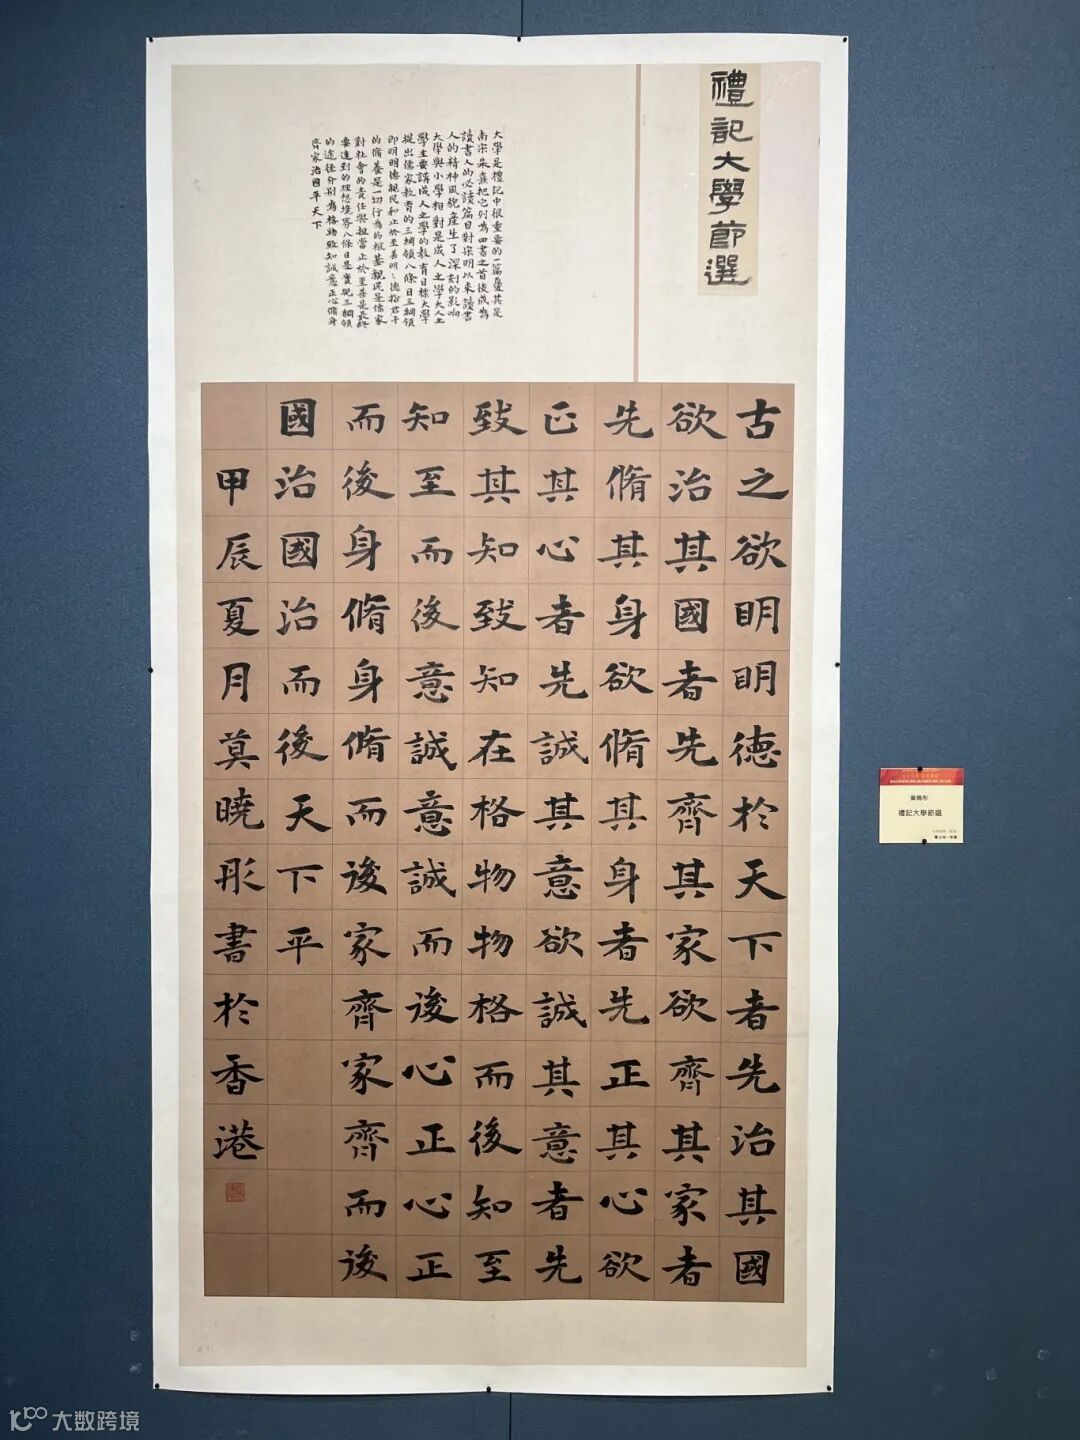 禮記大學節選
大學是禮記中很重要的一篇
南宋朱熹把它列為四書之首後成為
讀書人的必讀篇目對宋明以來讀書
人的精神風貌產生了深刻的影響
大學與小學相對是成人之學大人之
學主要講成人之學的教育目標大學
提出儒家教育的三綱領八條目三綱領
即明明德親民和止於至善明明德指君子
的脩養是一切行為的根基親民是儒家
對社會的責任與擔當止於至善是最終
要達到的理想境界八條目是實現三綱領
的途徑分別為格物致知誠意正心脩身
齊家治國平天下
古之欲明明德於天下者先治其國
欲治其國者先齊其家欲齊其家者
先脩其身欲脩其身者先正其心欲
正其心者先誠其意欲誠其意者先
致其知致知在格物物格而後知至
知至而後意誠意誠而後心正心正
而後身脩身脩而後家齊家齊而後
國治國治而後天下平
甲辰夏月莫曉彤書於香港
禮記大學節選
大数跨境